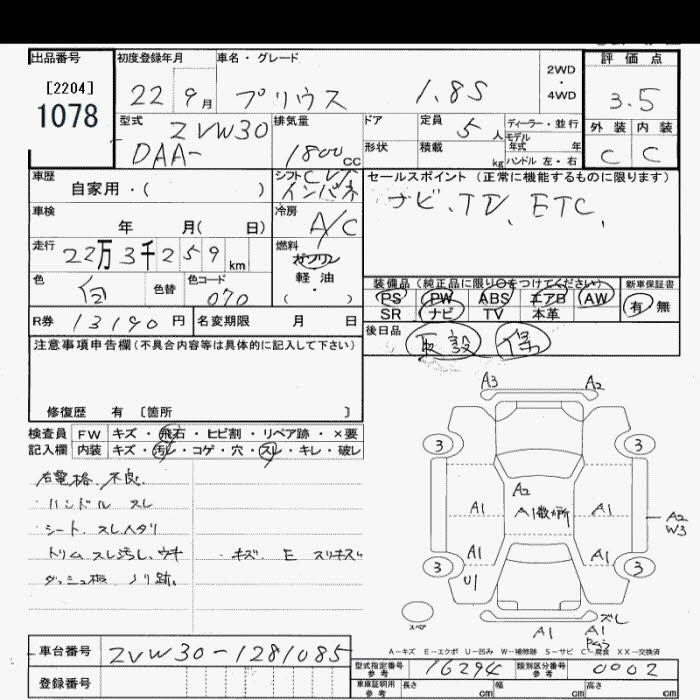 出品番号
[2204]
1078
初度登録年月
22 9月
車名・グレード
プリウス 1.8S
2WD
・
4WD
評価点
3.5
外装 内装
C C
型式
ZVW30
DAA-
排気量
1800cc
ドア
形状
定員 5人
積載 kg
ディーラー・並行
モデル
年式 年
ハンドル 左・右
車歴
自家用・( )
シフト
インパネ
セールスポイント(正常に機能するものに限ります)
ナビ、TV、ETC、
車検 年 月( 日)
冷房
A/C
走行
22万3千259km
燃料
ガソリン
軽油
( ・ )
色 白
色替
色コード
070
装備品(純正品に限り○をつけてください)
PS PW ABS エアB AW
SR ナビ TV 本革
新車保証書
有 無
R券 13190円
名変期限 月 日
後日品
取説 保
注意事項申告欄(不具合内容等は具体的に記入して下さい)
修復歴 有 〔箇所 〕
検査員 FW キズ・飛石・ヒビ割・リペア跡・×要
記入欄 内装 キズ・汚レ・コゲ・穴・スレ・キレ・破レ
右電格、不良、
・ハンドル スレ
・シート、スレヘタリ
トリム スレ汚レ、ウキ
・キズ、E スリキズ
ダッシュ板 ノリ跡、
A3 A2
3 3
A2
A1 A1数ヶ所 A1
A2
W3
A1 A1
3 U1 3
スペア
A1
ズレ
A1
A-キズ E-エクボ U-凹み W-補修跡 S-サビ C-腐食 XX-交換済
車台番号 ZVW30-1281085
登録番号
型式指定番号
参考
16294
類別区分番号
参考
0002
車庫証明用
参考
長さ cm 幅 cm 高さ cm